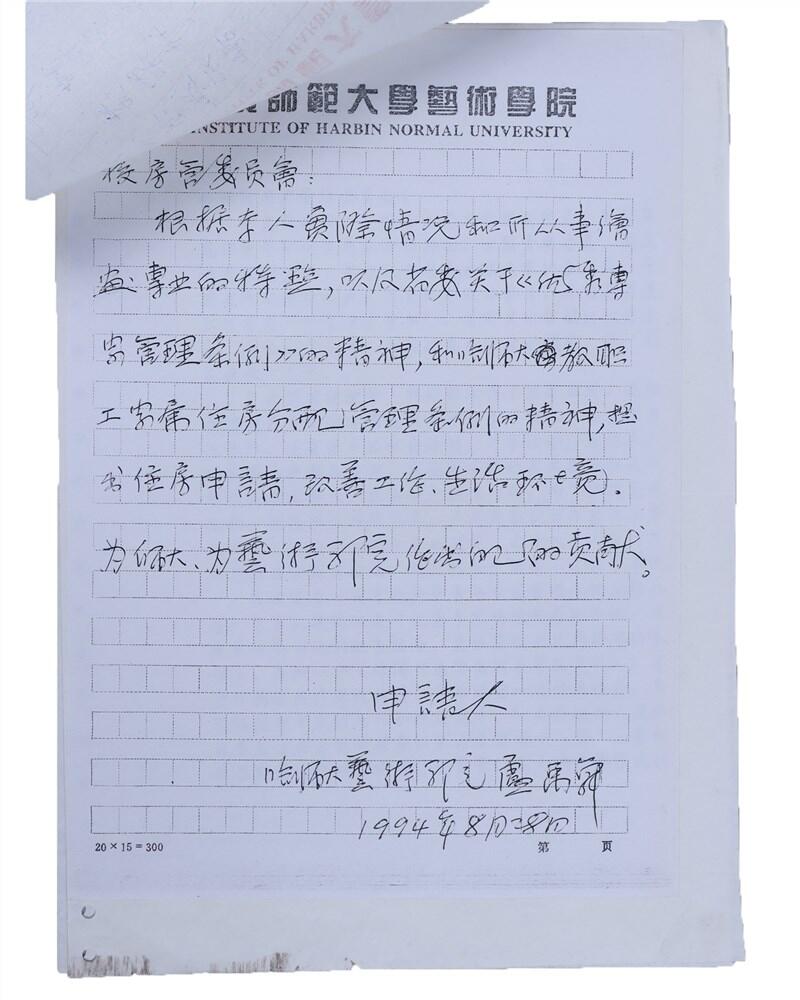 師範大學藝術學院
INSTITUTE OF HARBIN NORMAL UNIVERSITY
校房管委员會:
根据本人實際情况和所从事繪
画專业的特點,以及省委关于《优秀專
家管理条例》的精神,和哈师大教职
工家属住房分配管理条例的精神,提
出住房申請,改善工作、生活环境.
为师大、为藝術学院作出自己的贡献。
申請人
哈师大藝術学院盧禹舜
1994年8月28日
20×15=300
第 页